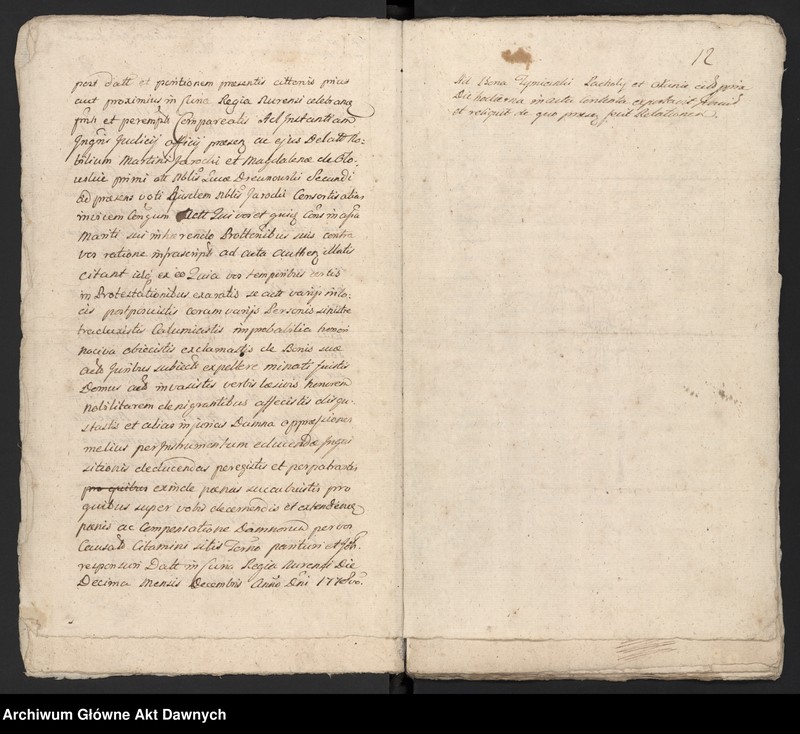 post datt et positionem presentis cittonis prius
aut proximius in Curia Regia Nurensi celebranoz
fmlr et peremptr Compareatis Ad Instantiam
Jngnis Judicij officij præsen ac ejus Delatt No-
bilium Martini Jarocki et Magdalenæ de Glo-
primi ott Nblis Lucæ Drewnowski Secundi
ad præsens voti Ejusdem Nblis Jarocki Consortis alias
invicem Congum Actt Qui vos et quis Cons in assa
Mariti sui inhærendo Prottonibus suis contra
vos ratione infrascriptt ad acta authen illatis
citant id ex eo Quia vos temporibus certis
in Protestationibus exaratis se actt varijs in lo-
cis postpositis coram varijs Personis sinistre
traduxistis Calumiastis improbabilia honori
nociva obiecistis exclamastis de Bonis suæ
Juribus subiectis expellere minati fuistis
Domus invasistis verbis læsivis honorem
nobilitarem denigrantibus affecistis disgu-
stastis et alias injurias Damna oppressiones
melius per Instrumentum educendæ Inqui
sitionis deducendas peregistis et perpatrastis
pro quibus exinde pænas succubuistis pro
quibus super vobis decernendis et extendendis
pænis ac Compensatione Damnorum per vos
Causat Citamini sitis Termo parituri et Jtb.
responsuri Datt in Curia Regia Nurensi Die
Decima Mensis Decembris Anno Dni
12
Ad Bona Tymionki Pacholy et citonis
Die hodierna in acta Condenta exportavit
et reliquit de quo præsen fecit Relationem.
Archiwum Główne Akt Dawnych